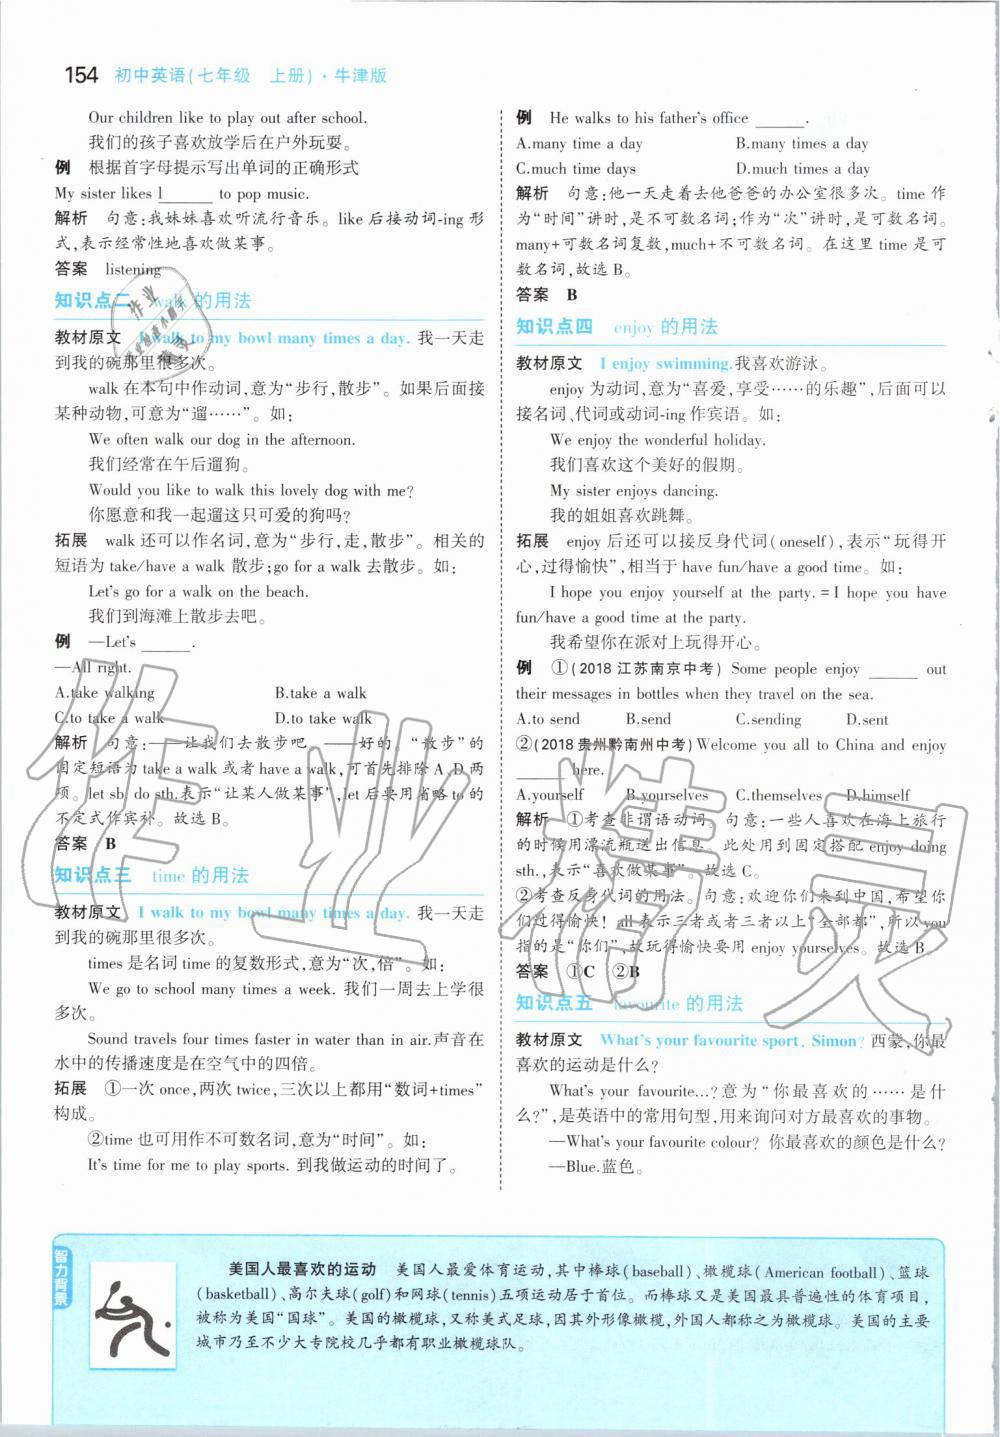 154 初中英语(七年级 上册)·牛津版
Our children like to play out after school.
我们的孩子喜欢放学后在户外玩耍。
例 根据首字母提示写出单词的正确形式
My sister likes l______ to pop music.
解析 句意:我妹妹喜欢听流行音乐。like 后接动词-ing 形
式,表示经常性地喜欢做某事。
答案 listening
知识点二 walk 的用法
教材原文 I walk to my bowl many times a day. 我一天走
到我的碗那里很多次。
walk 在本句中作动词,意为“步行,散步”。如果后面接
某种动物,可意为“遛……”。如:
We often walk our dog in the afternoon.
我们经常在午后遛狗。
Would you like to walk this lovely dog with me?
你愿意和我一起遛这只可爱的狗吗?
拓展 walk 还可以作名词,意为“步行,走,散步”。相关的
短语为 take/have a walk 散步;go for a walk 去散步。如:
Let's go for a walk on the beach.
我们到海滩上散步去吧。
例 —Let's ______.
—All right.
A.take walking B.take a walk
C.to take a walk D.to take walk
解析 句意:——让我们去散步吧。——好的。“散步”的
固定短语为 take a walk 或者 have a walk,可首先排除 A、D 两
项。let sb. do sth.表示“让某人做某事”,let 后要用省略 to 的
不定式作宾补。故选 B。
答案 B
知识点三 time 的用法
教材原文 I walk to my bowl many times a day. 我一天走
到我的碗那里很多次。
times 是名词 time 的复数形式,意为“次,倍”。如:
We go to school many times a week. 我们一周去上学很
多次。
Sound travels four times faster in water than in air.声音在
水中的传播速度是在空气中的四倍。
拓展 ①一次 once,两次 twice,三次以上都用“数词+times”
构成。
②time 也可用作不可数名词,意为“时间”。如:
It's time for me to play sports. 到我做运动的时间了。
例 He walks to his father's office ______.
A.many time a day B.many times a day
C.much time days D.much times a day
解析 句意:他一天走着去他爸爸的办公室很多次。time 作
为“时间”讲时,是不可数名词;作为“次”讲时,是可数名词。
many+可数名词复数,much+不可数名词。在这里 time 是可
数名词,故选 B。
答案 B
知识点四 enjoy 的用法
教材原文 I enjoy swimming.我喜欢游泳。
enjoy 为动词,意为“喜爱,享受……的乐趣”,后面可以
接名词、代词或动词-ing 作宾语。如:
We enjoy the wonderful holiday.
我们喜欢这个美好的假期。
My sister enjoys dancing.
我的姐姐喜欢跳舞。
拓展 enjoy 后还可以接反身代词(oneself),表示“玩得开
心,过得愉快”,相当于 have fun/have a good time。如:
I hope you enjoy yourself at the party. = I hope you have
fun/have a good time at the party.
我希望你在派对上玩得开心。
例 ①(2018江苏南京中考) Some people enjoy ______ out
their messages in bottles when they travel on the sea.
A.to send B.send C.sending D.sent
②(2018贵州黔南州中考) Welcome you all to China and enjoy
______ here.
A.yourself B.yourselves C.themselves D.himself
解析 ①考查非谓语动词。句意:一些人喜欢在海上旅行
的时候用漂流瓶送出信息。此处用到固定搭配 enjoy doing
sth.,表示“喜欢做某事”。故选 C。
②考查反身代词的用法。句意:欢迎你们来到中国,希望你
们过得愉快! all 表示三者或者三者以上“全部都”,所以 you
指的是“你们”,故玩得愉快要用 enjoy yourselves。故选 B。
答案 ①C ②B
知识点五 favourite 的用法
教材原文 What's your favourite sport, Simon? 西蒙,你最
喜欢的运动是什么?
What's your favourite...? 意为“你最喜欢的……是什
么?”,是英语中的常用句型,用来询问对方最喜欢的事物。
—What's your favourite colour? 你最喜欢的颜色是什么?
—Blue.蓝色。
智力背景
美国人最喜欢的运动 美国人最爱体育运动,其中棒球(baseball)、橄榄球(American football)、篮球
(basketball)、高尔夫球(golf)和网球(tennis)五项运动居于首位。而棒球又是美国最具普遍性的体育项目,
被称为美国“国球”。美国的橄榄球,又称美式足球,因其外形像橄榄,外国人都称之为橄榄球。美国的主要
城市乃至不少大专院校几乎都有职业橄榄球队。
作业精灵